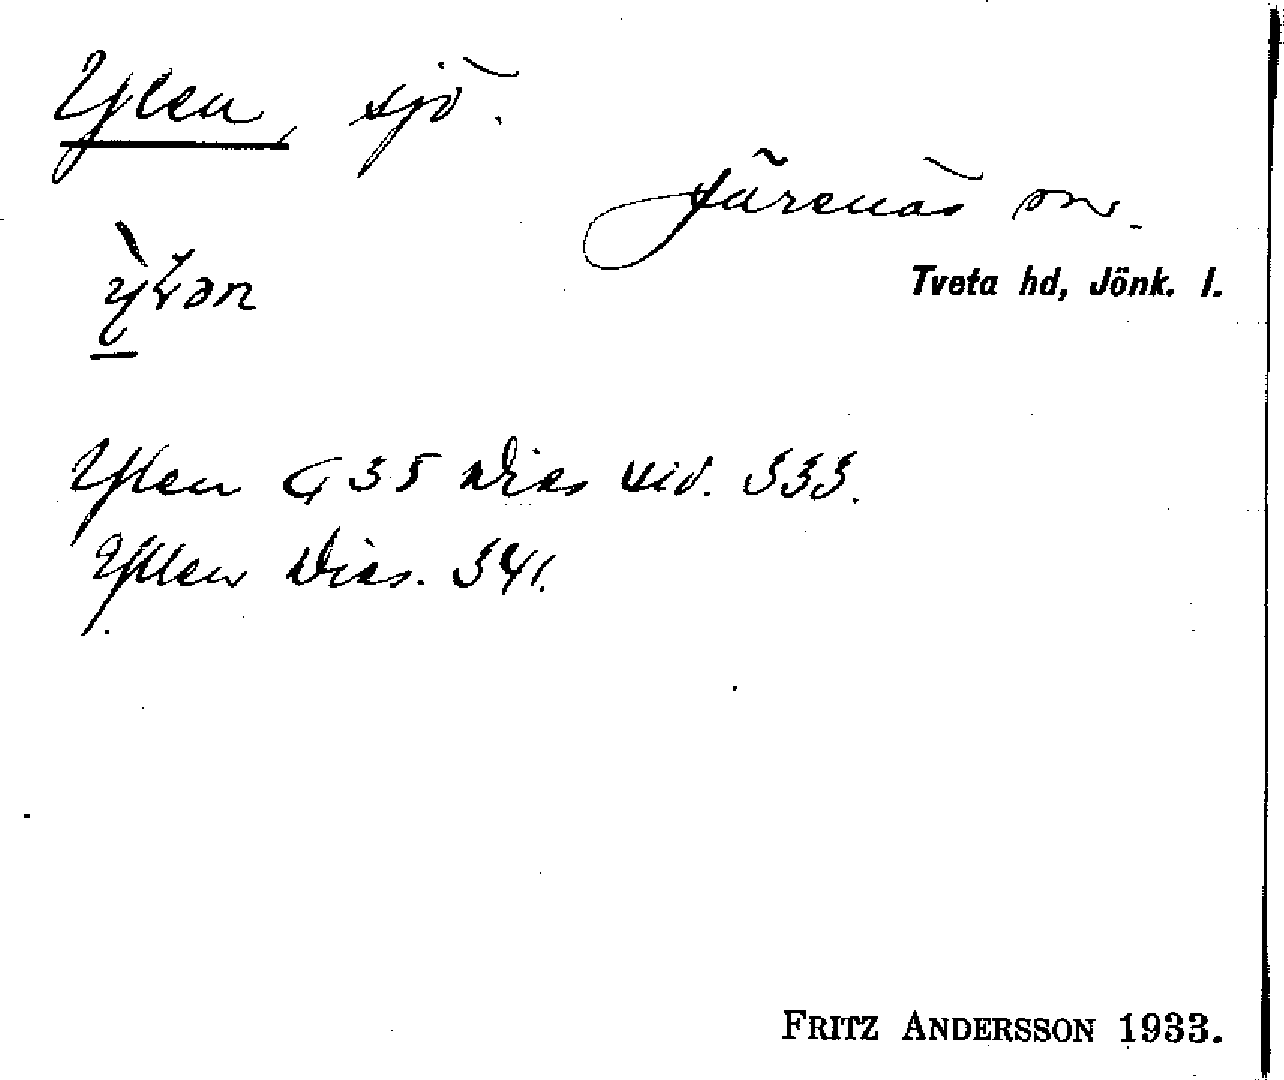 Ylen, sjö.
Järsnäs sn.
Tveta hd, Jönk. l.
Ylen G 35 Dias sid. 333.
Yllen Dias. 341.
FRITZ ANDERSSON 1933.